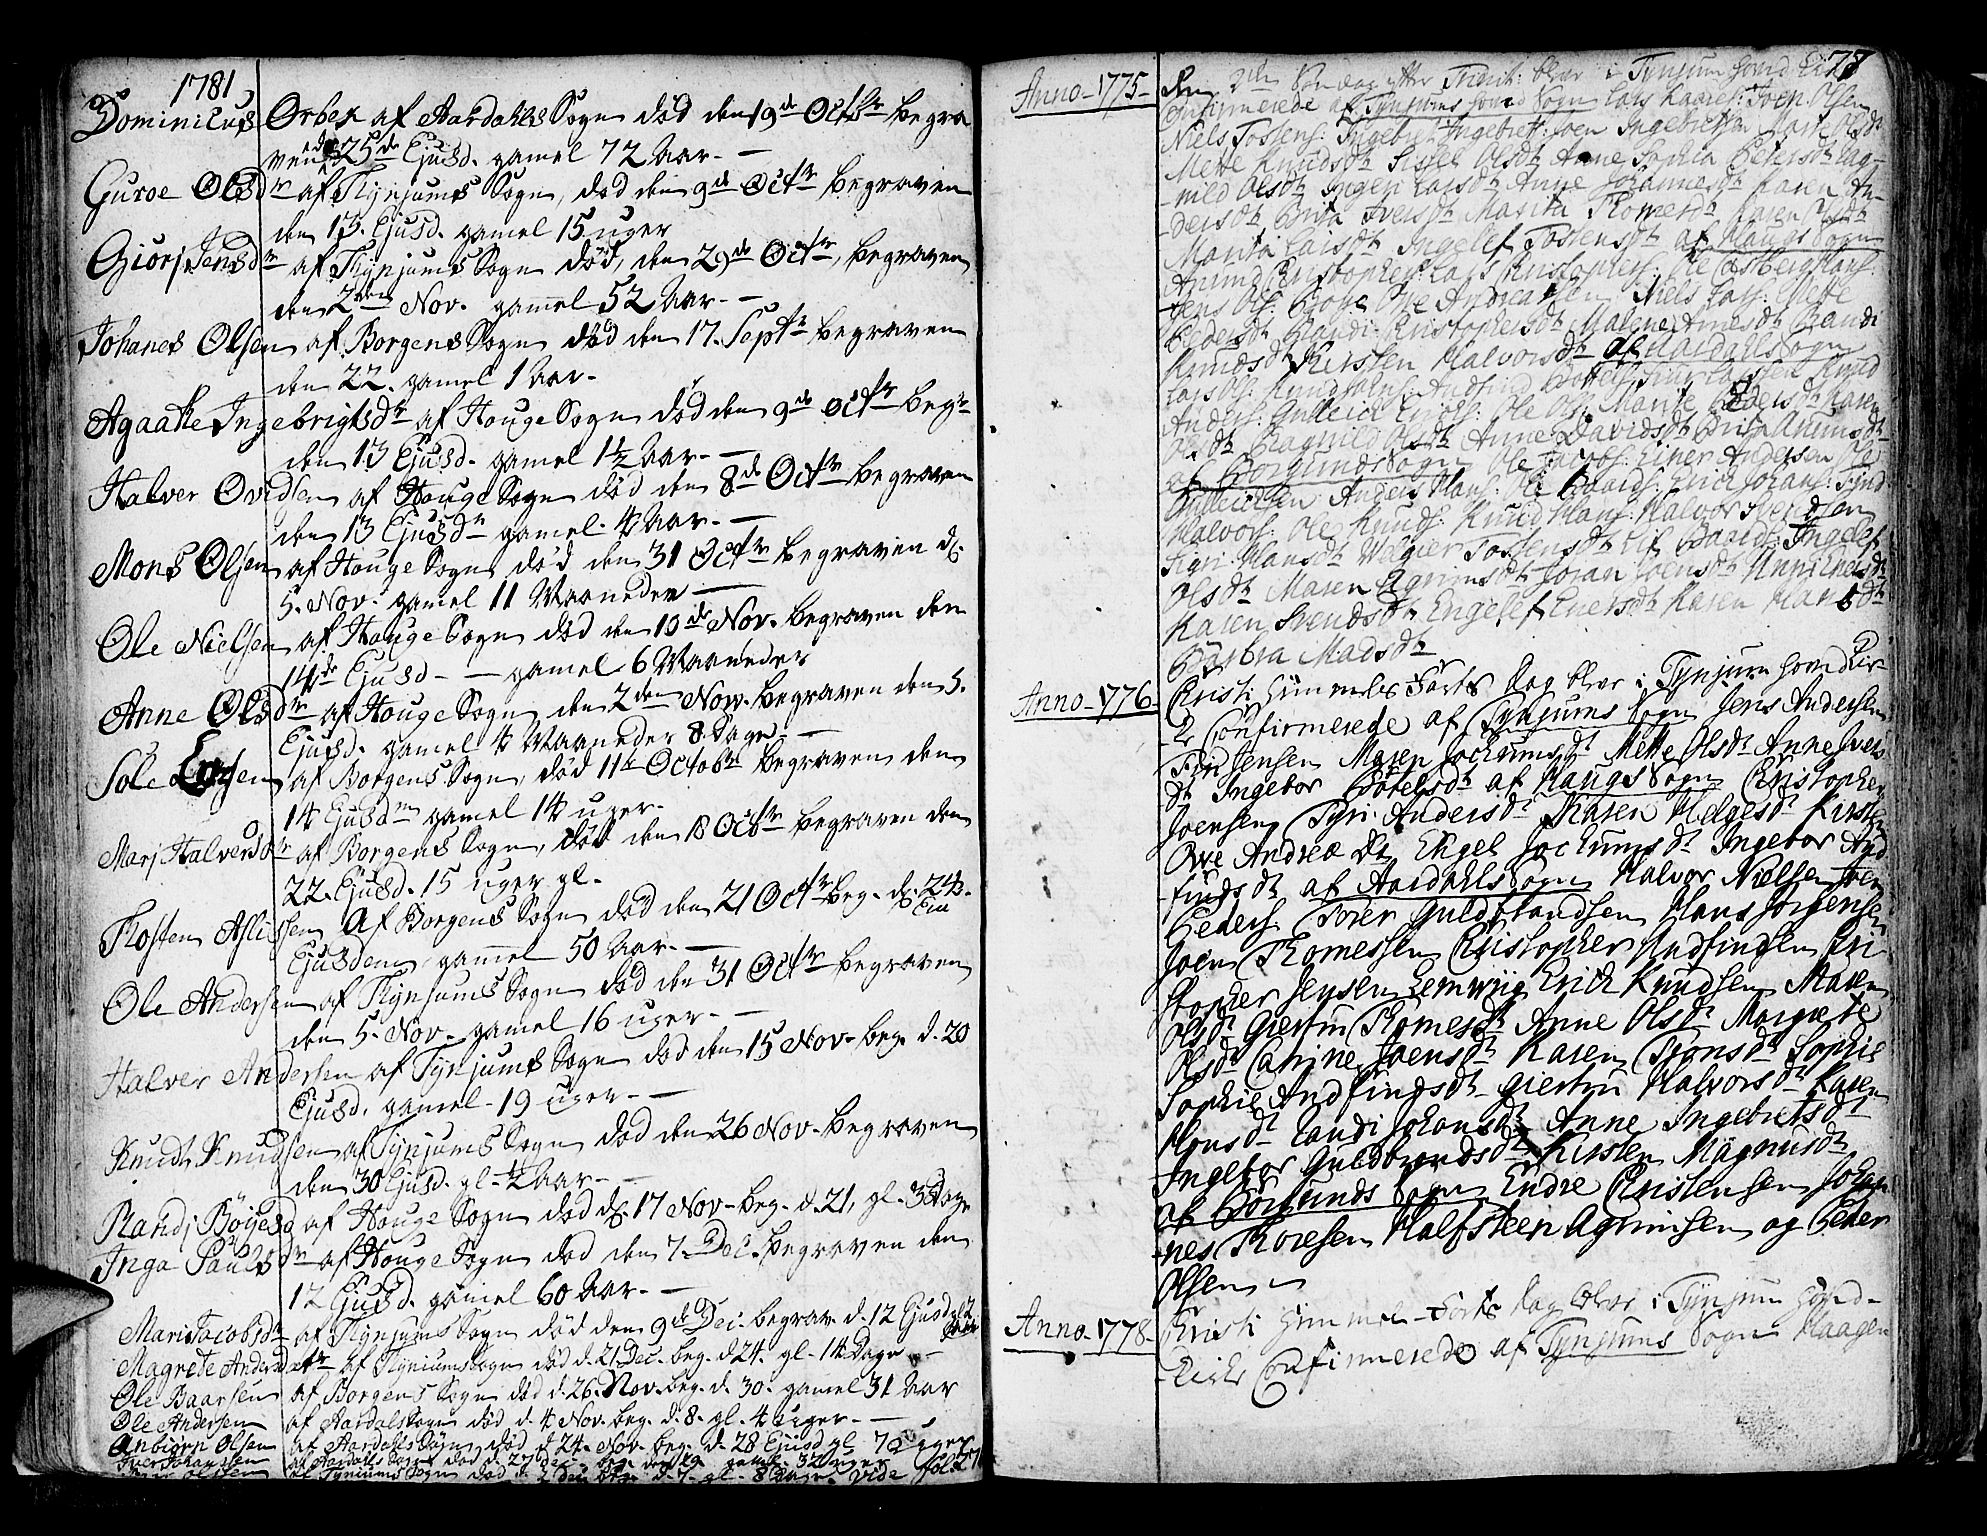 1781
Dominicus Orbek af Aardahls Sogn død den 19de Octbr begra
ven den 25de Ejusd. gamel 72 Aar. —
Guroe Olsdtr af Thynjums Sogn, død den 9de Octr begraven
den 13. Ejusd. gamel 15 uger
Giørj Jensdtr af Thynjums Sogn død, den 29de Octr, begraven
den 2den Nov. gamel 52 Aar. —
Johanes Olsen af Borgens Sogn død den 17. Septr begraven
den 22. gamel 1 Aar.
Agaathe Ingebrigtsdtr af Houge Sogn død den 9de Octr begr
den 13 Ejusd. gamel 1½ Aar. —
Halver Ovidsen af Houge Sogn død den 8de Octr begraven
den 13 Ejusdm gamel 4 Aar. —
Mons Olsen af Houge Sogn død den 31 Octr begraven d:
5. Nov. gamel 11 Maaneder —
Ole Nielsen af Houge Sogn død den 10de Nov. begraven den
14de Ejusd — gamel 6 Maaneder
Anne Olsdtr af Houge Sogn den 2den Nov. begraven den 5.
Ejusd. gamel 4 Maaneder 8 Dage. —
Sole Larsen af Borgens Sogn, død 11te Octobr begraven den
14 Ejusdm gamel 14 uger.
Marj Halversdr af Borgens Sogn, død den 18 Octbr begraven den
22. Ejusd. 15 uger gl.
Thosten Aslissen af Borgens Sogn død den 21 Octr beg. d: 24de
Ejusdem gamel 50 Aar. —
Ole Andersen af Thynjums Sogn død den 31 Octr begraven
den 5. Nov. gamel 16 uger. —
Halver Andersen af Tynjums Sogn død den 15 Nov. beg. d. 20
Ejusd. gamel 19 uger. —
Knudt Knudsen af Tynjums Sogn død den 26 Nov. begraven
den 30 Ejusd. gl. ½ Aar. —
Randj Bøyesd af Houge Sogn død d: 17 Nov. beg. d. 21, gl. 3 Dage
Inga Paulsdr af Houge Sogn død den 7. Dec. begraven den
12 Ejusd. gamel 60 Aar. —
Mari Jacobsdr af Thynjums Sogn død den 9de Dec. begrav. d. 12 Ejusd gl 2
Magrete Andersdatr af Thynjums Sogn død d. 21 Dec. beg. d 24. gl. 14 Dage —
Ole Baarsen af Borgens Sogn død d. 26. Nov. beg. d. 30. gamel 31 Aar
Ole Andersen af Aardals Sogn død d. 4 Nov. beg. d. 8. gl. 4 uger. —
Anbiørn Olsen af Aardalls Sogn død d. 24. Nov. beg. d. 28 Ejusd gl 7 uger
Iver Johansen af Aardalls Sogn død d. 27 Dec. beg. den 29 gaml. 32 uger
77
Anno 1775 Den 2den Søndag efter Trinit: blev i Tynjum hoved Kir
Confirmerede af Tynjums hoved Sogn Lars Kaares: Joen Olsen
Niels Tostens: Ingebret Ingebrett: Joen Ingebretsen Marte Olsdt
Mette Knudsdt Sissel Olsdt Anne Sophia Pedersdt Rag-
-nild Olsdt Inger Larsdt Anne Johannesdt Karen An-
dersdt Brita Iversdt Marita Thomesdt Karen Olsdt
Marita Larsdt Ingelef Tostensdt af Haugs Sogn
Anund Christophers: Lars Christophers: Ole Castbergs Hans:
Jens Ols: Boye Ove Andreasen Niels Lars: Mette
Pedersdt Randi Christophersdt Malene Arnesdt Randi
Knudsdt Kirsten Halvorsdt af Aardahls Sogn
Lars Ols: Knud Johns: Andfind Bottels: Siur Larssen Knud
Anders: Gulleick Ericks: Ole Ols: Marite Pedersdt Karen
Olsdt Ragnild Olsdt Anne Davidsdt Brita Anunsdt
af Borgunds Sogn Ole Halvors: Einer Andersen Ole
Gulleicksen Anders Hans: Ole Baards: Erick Johans: Siund
Halvors: Ole Knuds: Knud Hans: Halvor Svendsen
Sigri Hansdt Welgier Tostensdt Lif Baards: Ingelef
Olsdt Maren Agrimsdt Joran Joensdt Anni Enersdt
Karen Svendsdt Engelef Enersdt Karen Hansdt
Barbra Madsdt
Anno 1776 Christi Himmels Farts Dag blev i Tynjum hoved Kir-
-ke Confirmerede af Tynjums Sogn Jens Andersen
Find Jensen Maren Jochumsdt Mette Olsdt Anne Ivers
dt Ingebor Bottelsdt af Haugs Sogn Christopher
Joensen Syri Andersdt Karen Helgesdt Kirsten
Ove Andreæ dt Engel Jochumsdt Ingebor And
findsdt af Aardahls Sogn Halvor Nielsen Joen
Peders: Torer Guldbrandsen Hans Jørgensen
Joen Thomessen Christopher Andfindsen Chri
stopher Jensen Lemwiig Erich Knudsen Maren
Olsdt Giertru Thomesdt Anne Olsdt Margrete
Olsdt Catrine Joensdt Karen Tronsdt Sophie
Sophie Andfindsdt Giertru Halvorsdt Karen
Monsdt Randi Johansdt Anne Ingebretsdt
Ingebor Guldbrandsdt Kirsten Magnusdt
af Borgunds Sogn Endre Christensen Johan
nes Thoresen Halfsteen Agrimsen og Peder
Olsen
Anno 1778 Christi Himmel Farts Dag blev i Tynjum hoved-
Kirke Confirmerede af Tynjums Sogn Haagen